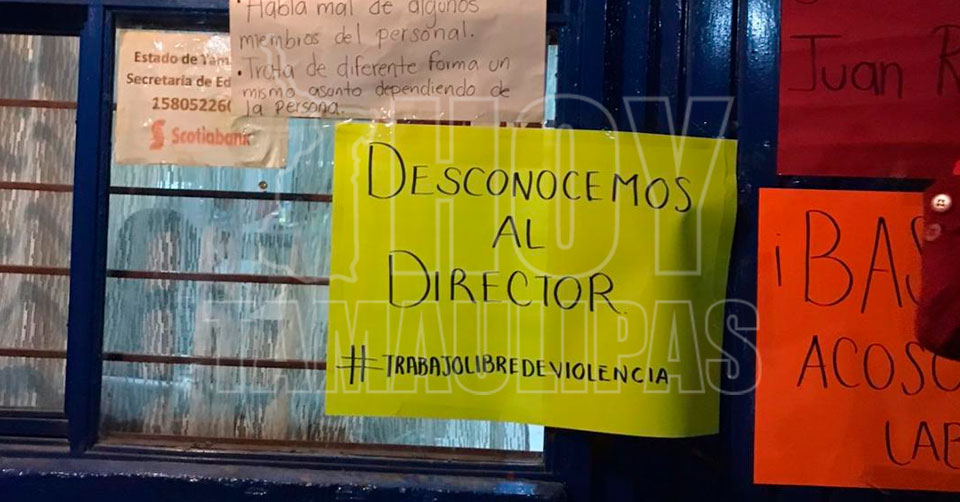 Habla mal de algunos
miembros del personal.
• Trata de diferente forma un
mismo asunto dependiendo de
la persona.
Estado de Tam
Secretaría de Ed
158052260
Scotiabank
DESCONOCEMOS
AL
DIRECTOR
#TRABAJOLIBREDEVIOLENCIA
Juan R
¡BAS
ACOSO
LAB
HOY
TAMAULIPAS